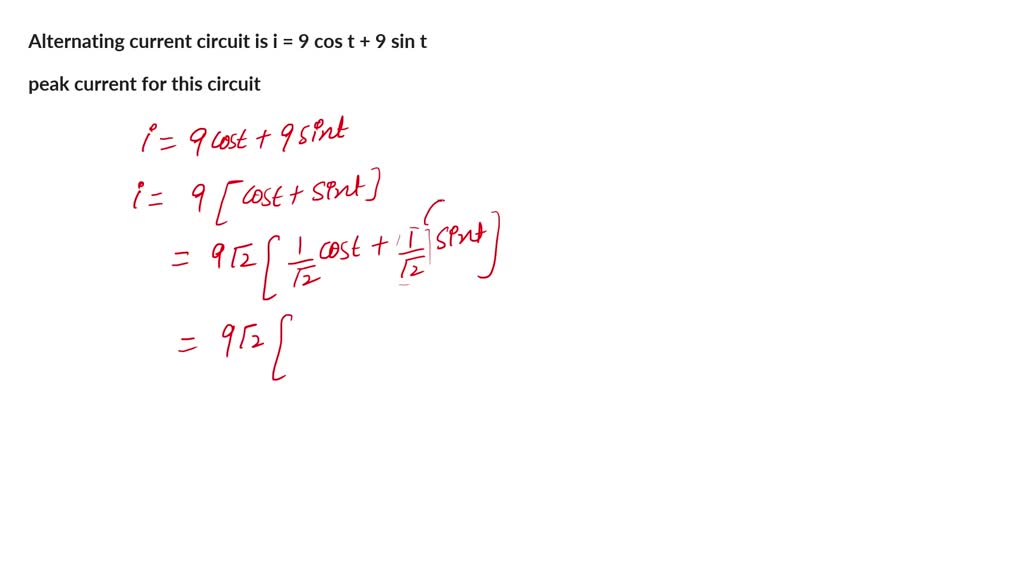 Alternating current circuit is i = 9 cos t + 9 sin t
peak current for this circuit
i = 9 cost + 9 sint
i = 9 [cost + sint]
= 9√2 [1/√2 cost + 1/√2 sint]
= 9√2 [